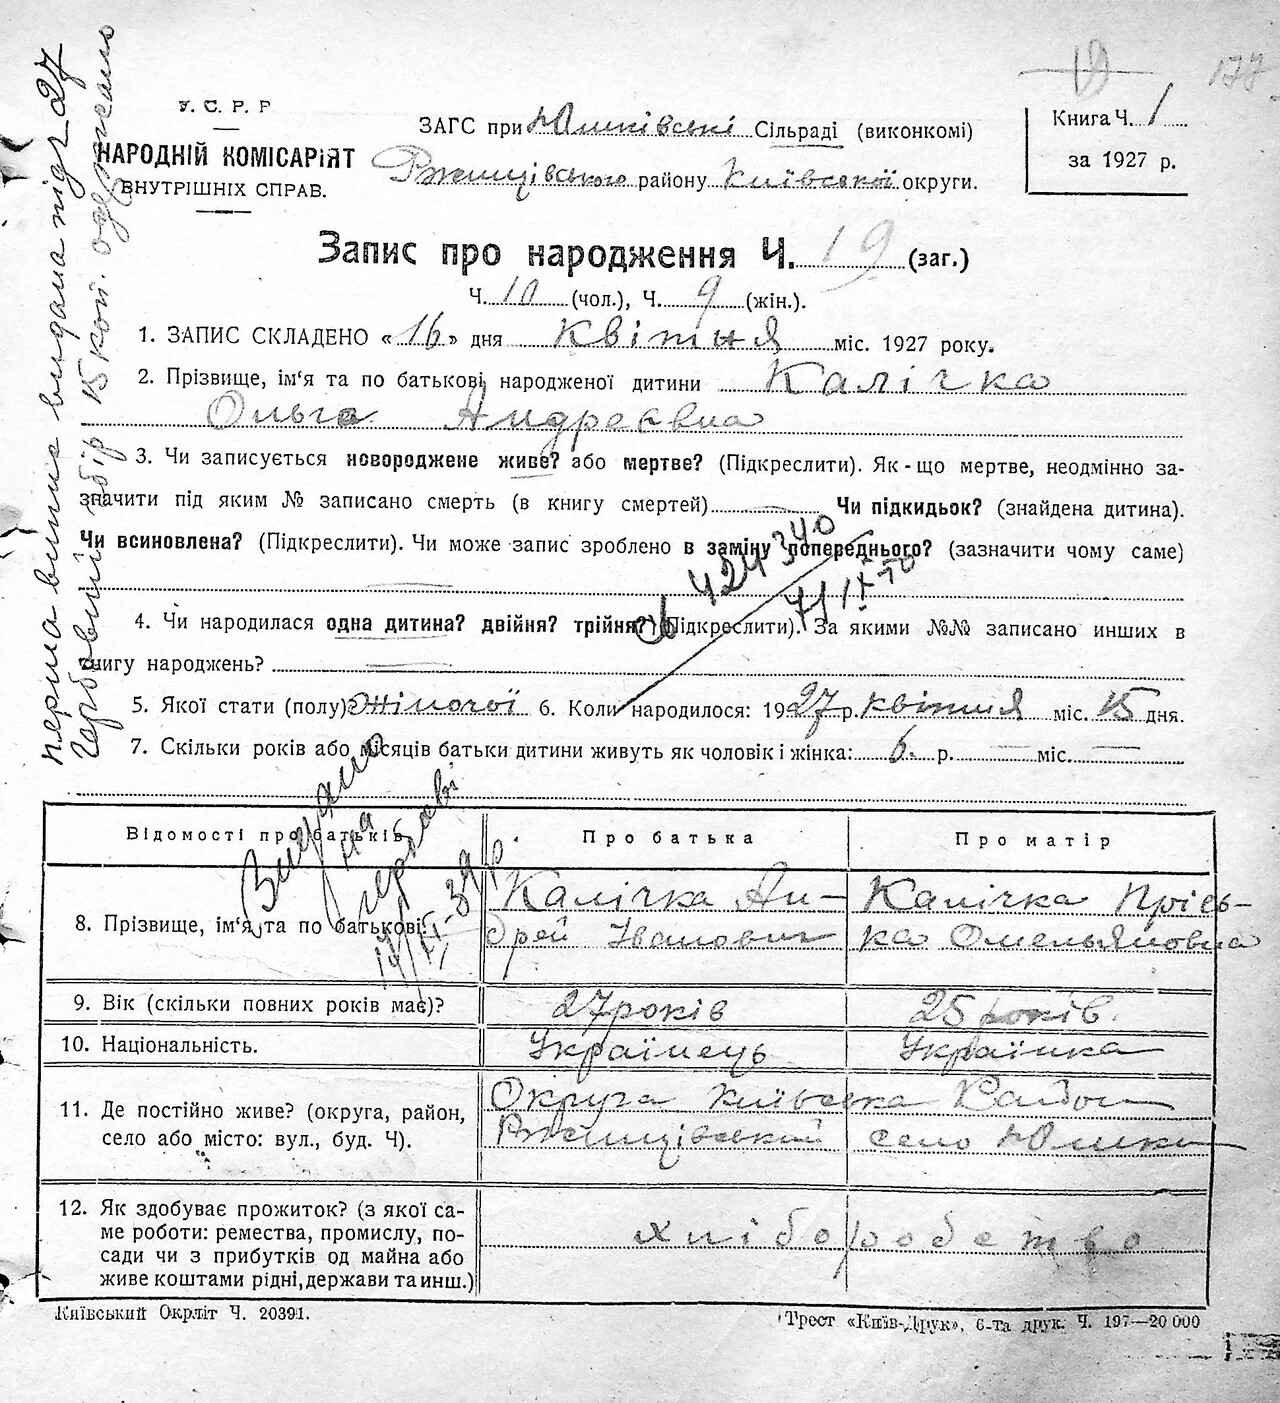 177
У. С. Р. Р
НАРОДНІЙ КОМІСАРІЯТ
ВНУТРІШНІХ СПРАВ.
ЗАГС при Юшківські Сільраді (виконкомі)
Ржищівського району Київської округи.
Книга Ч. 1
за 1927 р.
Запис про народження Ч. 19 (заг.)
Ч. 10 (чол.), Ч. 9 (жін.).
1. ЗАПИС СКЛАДЕНО «16» дня квітня міс. 1927 року.
2. Прізвище, ім‘я та по батькові народженої дитини Калічка
Ольга Андреєвна
3. Чи записується новороджене живе? або мертве? (Підкреслити). Як-що мертве, неодмінно за-
значити під яким № записано смерть (в книгу смертей) Чи підкидьок? (знайдена дитина).
Чи всиновлена? (Підкреслити). Чи може запис зроблено в заміну попереднього? (зазначити чому саме)
4. Чи народилася одна дитина? двійня? трійня? (Підкреслити). За якими №№ записано инших в
книгу народжень?
5. Якої стати (полу) жіночої 6. Коли народилося: 1927 р. квітня міс. 15 дня.
7. Скільки років або місяців батьки дитини живуть як чоловік і жінка: 6 р. міс.
Відомості про батьків
Про батька
Про матір
8. Прізвище, ім‘я та по батькові
Калічка Ан-
дрей Іванович
Калічка Прісь-
ка Омельяновна
9. Вік (скільки повних років має)?
27 років
25 років.
10. Національність.
Українець
Українка
11. Де постійно живе? (округа, район,
село або місто: вул., буд. Ч).
Округа Київська Район
Ржищівський село Юшки
12. Як здобуває прожиток? (з якої са-
ме роботи: ремества, промислу, по-
сади чи з прибутків од майна або
живе коштами рідні, держави та инш.)
хліборобство
Київський Окрліт Ч. 20391.
Трест «Київ-Друк», 6-та друк. Ч. 197—20 000
Перша випись видана під 27
Гербовий збір 15 коп. одержано
424340
Видано